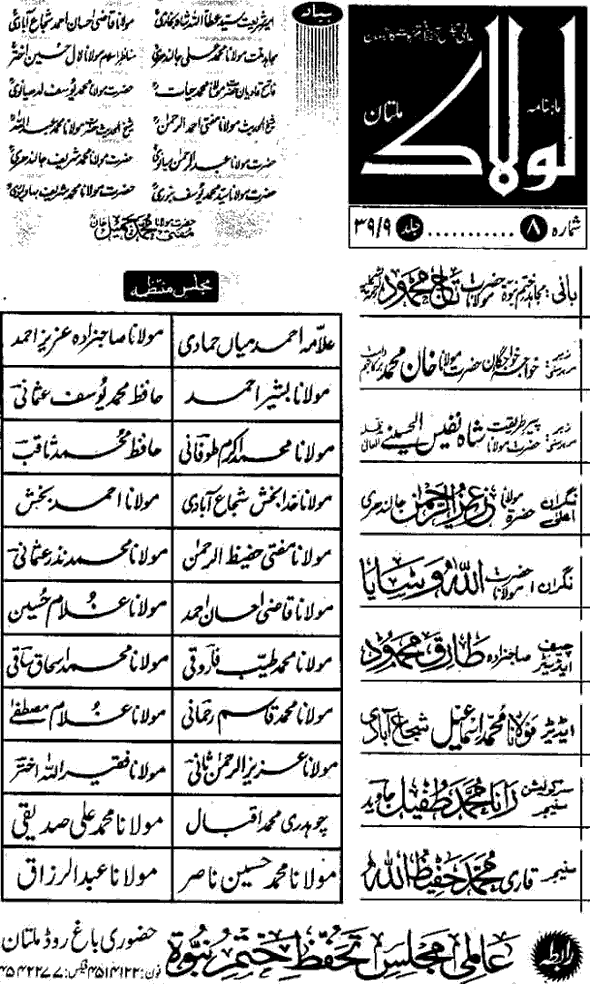 عالمی مجلس تحفظ ختم نبوت کا ترجمان
ماہنامہ
لولاک
ملتان
شمارہ ۸ ........... جلد ۳۹/۹
بیاد
امیر شریعت سید عطاء اللہ شاہ بخاریؒ
مولانا قاضی احسان احمد شجاع آبادیؒ
مجاہد ملت مولانا محمد علی جالندھریؒ
مناظر اسلام مولانا لال حسین اخترؒ
فاتح قادیان حضرت مولانا محمد حیاتؒ
حضرت مولانا محمد یوسف لدھیانویؒ
شیخ الحدیث مولانا مفتی احمد الرحمنؒ
شیخ الحدیث حضرت مولانا محمد عبداللہؒ
حضرت مولانا عبدالرحمن میانویؒ
حضرت مولانا محمد شریف جالندھریؒ
حضرت مولانا سید محمد یوسف بنوریؒ
حضرت مولانا محمد شریف بہاولپوریؒ
حضرت مولانا مفتی محمد جمیل خانؒ
بانی: مجاہد ختم نبوۃ حضرت مولانا تاج محمود
زیر سرپرستی: خواجہ خواجگان حضرت مولانا خان محمد
زیر سرپرستی: پیر طریقت حضرت مولانا شاہ نفیس الحسینی
نگران اعلیٰ حضرۃ مولانا عزیز الرحمن جالندھری
نگران: حضرت مولانا اللہ وسایا
چیف ایڈیٹر صاحبزادہ طارق محمود
ایڈیٹر مولانا محمد اسماعیل شجاع آبادی
سرکولیشن منیجر رانا محمد طفیل جاوید
منیجر قاری محمد حفیظ اللہ
مجلس منتظمہ
علامہ احمد میاں حمادی
مولانا صاحبزادہ عزیز احمد
مولانا بشیر احمد
حافظ محمد یوسف عثمانی
مولانا محمد اکرم طوفانی
حافظ محمد ثاقب
مولانا خدا بخش شجاع آبادی
مولانا احمد بخش
مولانا مفتی حفیظ الرحمن
مولانا محمد نذر عثمانی
مولانا قاضی احسان احمد
مولانا غلام حسین
مولانا محمد طیب فاروقی
مولانا محمد اسحاق ساقی
مولانا محمد قاسم رحمانی
مولانا غلام مصطفےٰ
مولانا عزیز الرحمن ثانی
مولانا فقیر اللہ اختر
چوہدری محمد اقبال
مولانا محمد علی صدیقی
مولانا محمد حسین ناصر
مولانا عبدالرزاق
رابطہ
عالمی مجلس تحفظ ختم نبوۃ
حضوری باغ روڈ ملتان
فون: ۴۵۱۴۱۲۲ فیکس: ۴۵۴۲۲۷۷